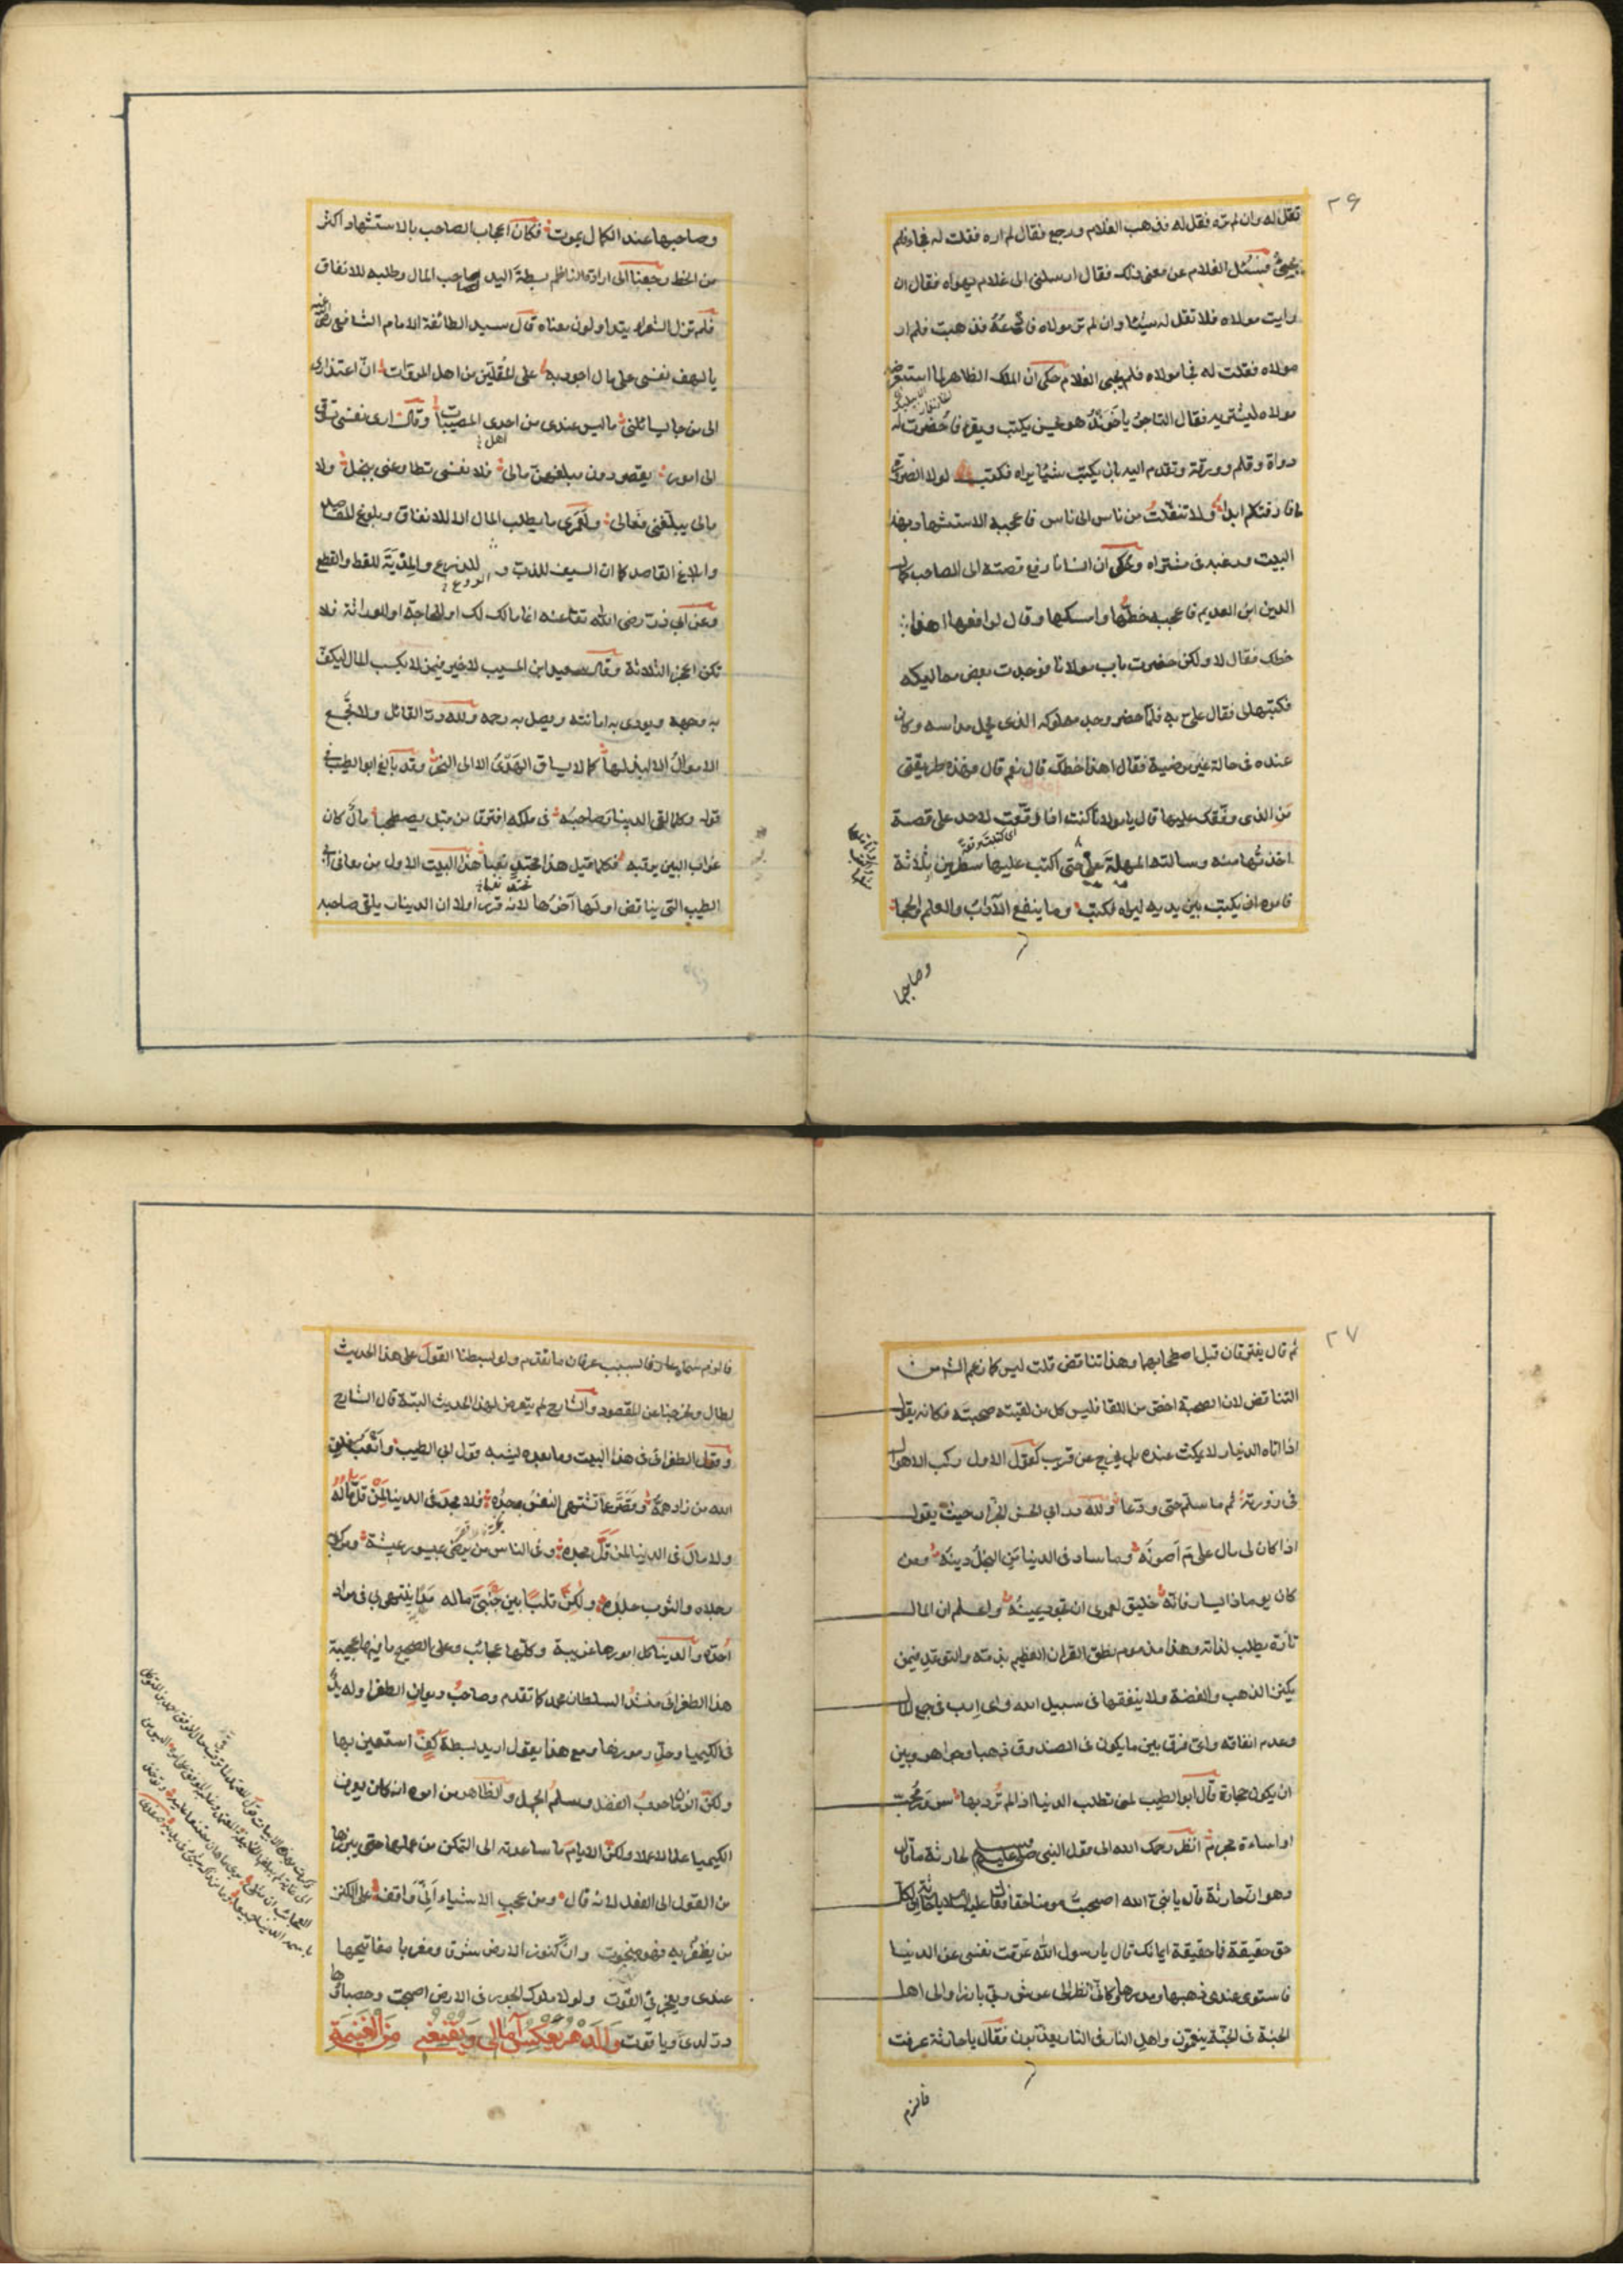 ٢٦
تقل له وان لم تره فقل له فذهب الغلام ورجع فقال لم اره فقلت له فجاء فلم
يجيئ فسئل الغلام عن معنى ذلك فقال ارسلنى الى غلام يهواه فقال ان
رايت مولاه فلا تقل له شيئا وان لم تر مولاه فادعه فذهبت فلم ار
مولاه فقلت له فجا مولاه فلم يجيى الغلام حكى ان الملك الظاهر لما استعرض
مولاه ليشتريه فقال التاجر ياخوند هو يكتب ويقرء فاحضرت له
دواة وقلم وورقة وتقدم اليه بان يكتب شيئا يراه فكتب لولا الضرورة
ما فارقتكم ابدا ولا تنقلت من ناس الى ناس فاعجبه الاستشهاد بهذا
البيت ورغبه فى مشتراه وحكى ان انسانا رفع قصته الى الصاحب كمال
الدين ابن العديم فاعجبه خطها وامسكها وقال لرافعها اهذا
خطك فقال لا ولكن حضرت باب مولانا فوجدت بعض مماليكه
فكتبها لى فقال على به فلما حضر وجد مملوكه الذى يحمل مداسه وكان
عنده فى حالة غير مرضية فقال اهذا خطك قال نعم قال فهذه طريقتى
من الذى وقفك عليها قال يا مولانا كنت اذا وقعت لاحد على قصة
اى كتبت رقعة
اخذتها منه وسالته المهلة على حتى اكتب عليها سطرين ثلاثة
فامره ان يكتب بين يديه ليراه فكتب وما ينفع الآداب والعلم والحجا
وصاحبها
وصاحبها عند الكمال يموت فكان اعجاب الصاحب بالاستشهاد اكثر
من الخط رجعنا الى ارادة الناظم بسطة اليد صاحب المال وطلبه للانفاق
فلم تزل الشعراء يتداولون معناه قال سيد الطائفة الامام الشافعى رضى
يا لهف نفسى على مال اجود به على المقلين من اهل المروات ان اعتذارى
الى من جا يسائلنى ما ليس عندى من احدى المصيبات وقال ارى نفسى تتوق
اهل
الى امور يقصر دون مبلغهن مالى فلا نفسى تطاوعنى ببخل ولا
مالى يبلغنى فعالى ولعمرى ما يطلب المال الا للانفاق وبلوغ المقاصد
وابلاغ القاصد كما ان السيف للذب و للدرع والمدية للقط والقطع
وعن ابى ذر رضى الله تعا عنه انما مالك لك او للحاجة او للوراثة فلا
تكن اعجز الثلاثة وقال سعيد ابن المسيب لا خير فيمن لا يكسب المال ليكف
به وجهه ويودى به امانته ويصل به رحمه ولله در القائل ولا تجمع
الاموال الا لبذلها كما لا يساق الهدى الا الى النحر وقد بالغ ابو الطيب فى
قوله وكلما لقى الدينار صاحبه فى ملكه افترقا من قبل يصطحبا مال كان
غراب البين يرقبه فكلما قيل هذا مجتد نعبا هذا البيت الاول من معانى ابى
الطيب التى يناقض اولها آخرها لانه قرر اولا ان الدينار يلقى صاحبه
٢٧
ثم قال يفترقان قبل اصطحابهما وهذا تناقض قلت ليس كما زعم الشر من
التناقض لان الصحبة اخص من اللقا فليس كل من لقيته صحبته فكانه يقول
اذا اتاه الدينار لا يمكث عنده بل يخرج عن قريب كقول الاول ركب الاهوال
فى زورته ثم ما سلم حتى ودعا ولله در ابى الحسن الجزار حيث يقول
اذا كان لى مال على م اصونه وما ساد فى الدنيا من البخل دينه ومن
كان يوما ذا يسار فانه خليق لعمرى ان تجود يمينه واعلم ان المال
تارة يطلب لذاته وهذا مذموم نطق القران العظيم بذمته والتوعد فيمن
يكنز الذهب والفضة ولا ينفقها فى سبيل الله واى ارب فى جمع المال
وعدم انفاقه واى فرق بين ما يكون فى الصندوق ذهبا وجواهر وبين
ان يكون حجارة قال ابو الطيب لمن تطلب الدنيا اذا لم ترد بها سرور محب
او اساءة مجرم انظر رحمك الله الى قول النبى صلى الله عليه وسلم لحارثة ما قال
وهو ان حارثة قال يا نبى الله اصبحت مومنا حقا فقال عليه السلام يا حارثة لكل
حق حقيقة فما حقيقة ايمانك قال يا رسول الله عزفت نفسى عن الدنيا
فاستوى عندى ذهبها ومدرها وكانى انظر الى عرش ربى بارزا والى اهل
الجنة فى الجنة ينعمون واهل النار فى النار يعذبون فقال يا حارثة عرفت
فالزم
فالزم ولو بسطنا القول على هذا الحديث
لطال وخرجنا عن المقصود والشارح لم يتعرض لهذا الحديث البتة قال الشارح
وقول الطغرائى فى هذا البيت وما بعده يشبه قول ابى الطيب واتعب خلق
الله من زاد همه وقصر عما تشتهى النفس وجده فلا مجد فى الدنيا لمن قل ماله
ولا مال فى الدنيا لمن قل مجده وفى الناس من يرضى بميسور عيشة ومركوبه
رجلاه والثوب جلده ولكن قلبا بين جنبى ماله مدا ينتهى بى فى مراد
احده والدنيا كل امورها غريبة وكلها عجائب وعلى الصحيح ما فيها عجيبة
هذا الطغرائى منشئ السلطان محمد كما تقدم وصاحب ديوان الطغرا وله يد
فى الكيميا وحل رموزها ومع هذا يقول اريد بسطة كف استعين بها
ولكن الزمان حرب الفضل وسلم الجهل والظاهر من امره انه كان يعرف
الكيميا علما لا عملا ولكن الايام ما ساعدته الى التمكن من عملها حتى يبرزها
من القول الى الفعل لانه قال ومن عجب الاشياء انى واقف على الكنز
من يظفر به فهو مبخوت وان كنوز الارض شرقا ومغربا مفاتيحها
عندى ويعجزنى القوت ولولا ملوك الجور فى الارض اصبحت وحصباؤها
در لدى وياقوت والدهر يعكس آمالى ويقنعنى من الغنيمة